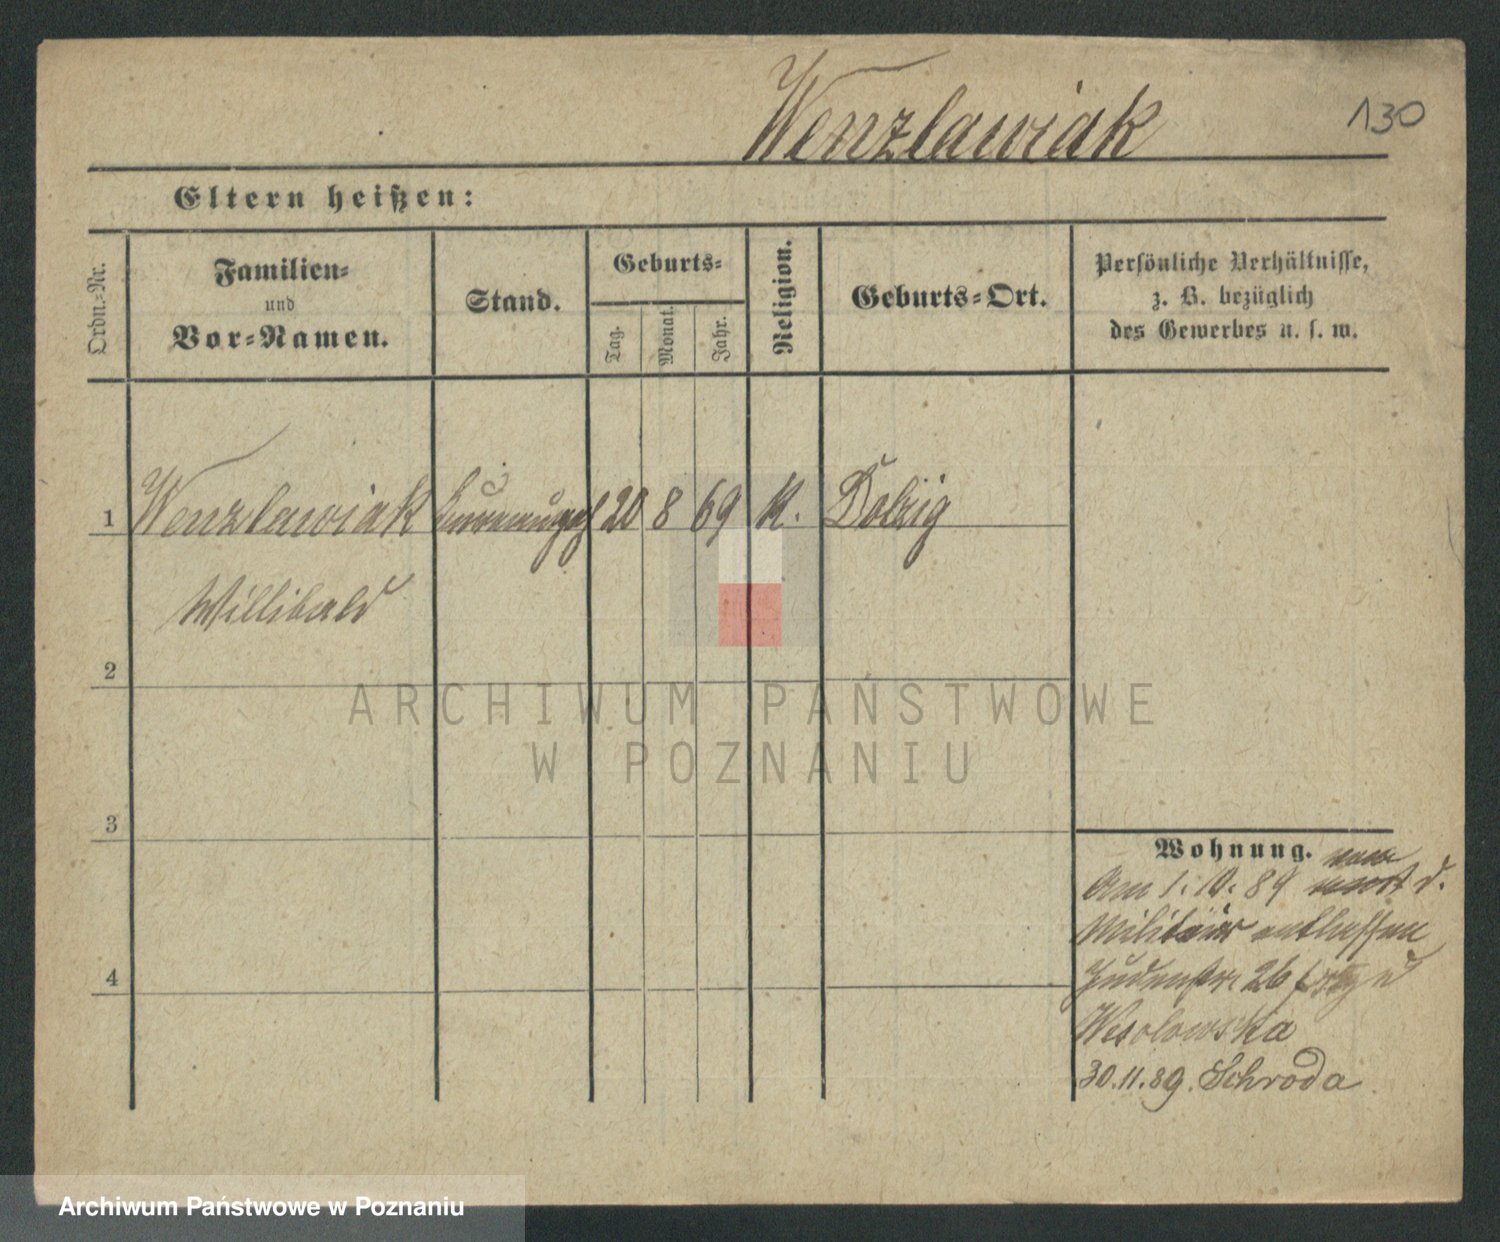 Wenzlawiak
130
Eltern heißen:
Ordn.-Nr.
Familien-
und
Vor-Namen.
Stand.
Geburts-
Tag.
Monat.
Jahr.
Religion.
Geburts-Ort.
Persönliche Verhältnisse,
z. B. bezüglich
des Gewerbes u. s. w.
1 Wenzlawiak 20 8 69 K. Dolzig
Willibald
2
3
4
Wohnung.
Am 1. 10. 89 d.
Militär entlassen
Judenstr. 26
Wesolowska
30.11.89. Schroda
ARCHIWUM PAŃSTWOWE
W POZNANIU
Archiwum Państwowe w Poznaniu